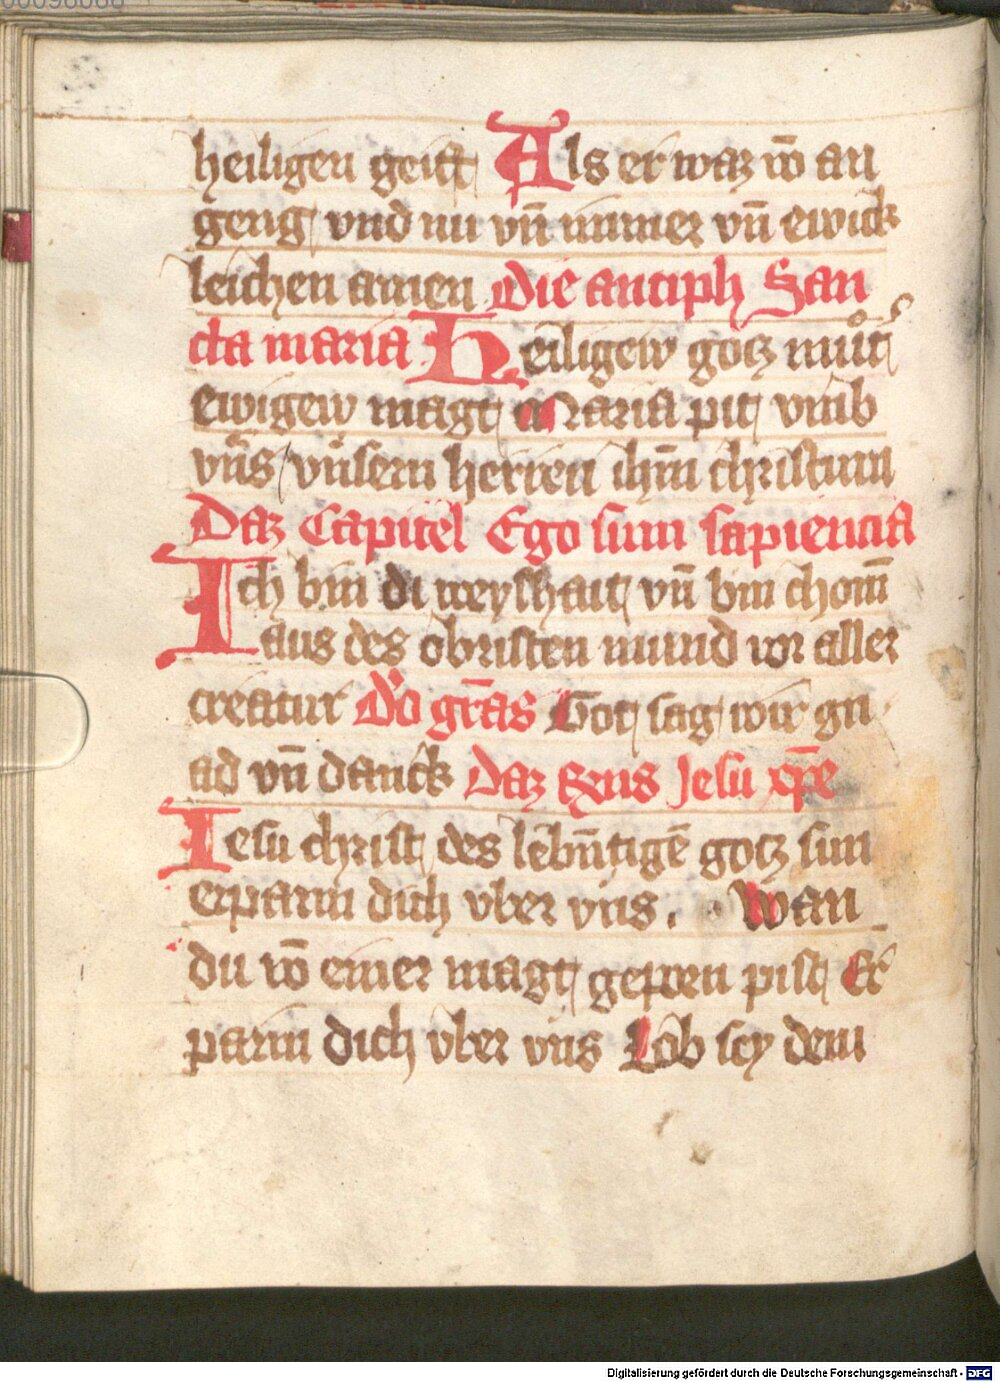 heiligen geist Als er waz vō an
geng vnd nu vn̄ nimmer vn̄ ewick
leichen amen Die antiph San
cta maria Heiligew gotz mūt
ewigew magt Maria pit vmb
vns vnsern herren ihm̄ christum
Daz Capitel Ego sum sapiencia
Ich bin di weyshait vn̄ bin chom̄
aus des obristen mund vor aller
creatur Do gr̄as Got sag wir gn
ad vn̄ danck Daz Rxus Jesu xp̄e
Iesu christ des lebn̄tigē gotz sun
erparm dich vber vns. Wan
du vō einer magt geporn pist Er
parm dich vber vns Lob sey dem
Digitalisierung gefördert durch die Deutsche Forschungsgemeinschaft - DFG